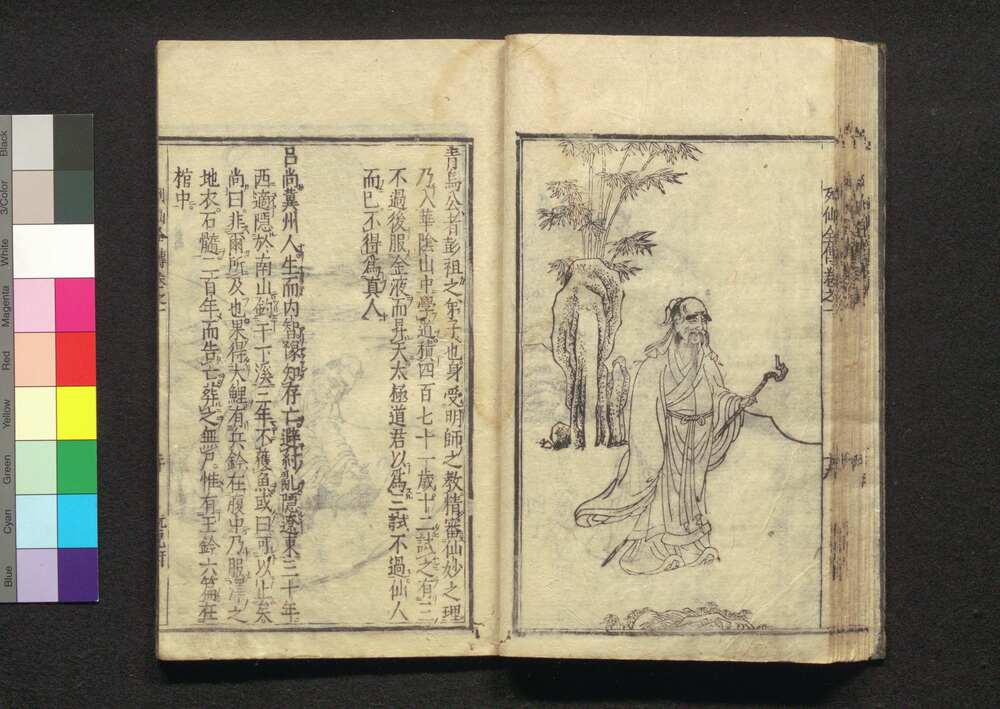 列仙全傳卷之一
青烏公者彭祖之弟子也身受明師之教精審仙妙之理
乃入華陰山中學道積四百七十一歲十二試之有三
不過後服金液而昇天太極道君以爲三試不過仙人
而已不得爲真人
呂尚冀州人生而内智豫知存亡避紂亂隱遼東三十年
西適隱於南山釣于卞溪三年不獲魚或曰可以止矣
尚曰非爾所及也果得大鯉有兵鈐在腹中乃服澤之
地衣石髓二百年而告亡葬之無尸惟有玉鈐六篇在
棺中
列仙全傳卷之一
Black
3/Color
White
Magenta
Red
Yellow
Green
Cyan
Blue